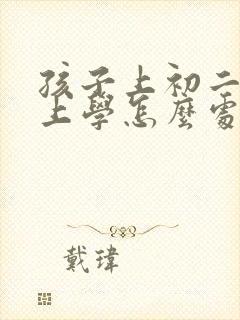 孩子上初二
上學怎麼處
戴瑋